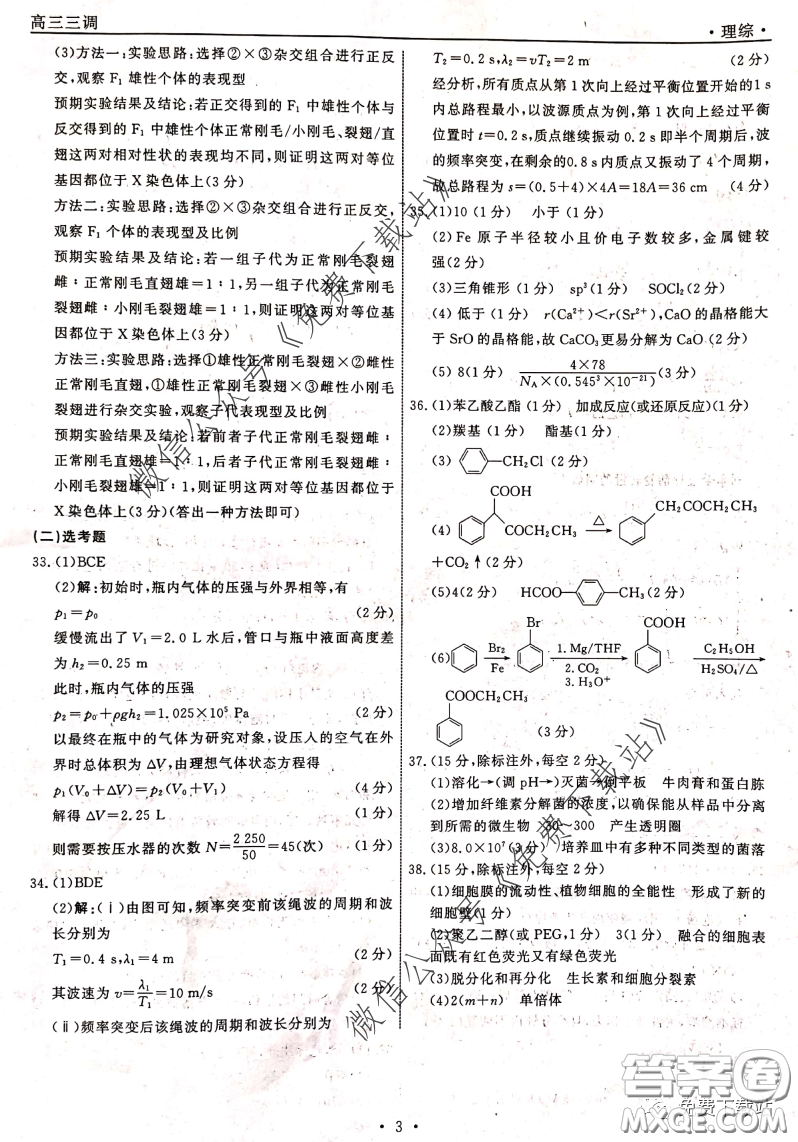 高三三调
·理综·
(3)方法一:实验思路:选择②×③杂交组合进行正反
交,观察 F₁ 雄性个体的表现型
预期实验结果及结论:若正交得到的 F₁ 中雄性个体与
反交得到的 F₁ 中雄性个体正常刚毛/小刚毛、裂翅/直
翅这两对相对性状的表现均不同,则证明这两对等位
基因都位于 X 染色体上(3 分)
方法二:实验思路:选择②×③杂交组合进行正反交,
观察 F₁ 个体的表现型及比例
预期实验结果及结论:若一组子代为正常刚毛裂翅
雌:正常刚毛直翅雄=1:1,另一组子代为正常刚毛
裂翅雌:小刚毛裂翅雄=1:1,则证明这两对等位基
因都位于 X 染色体上(3 分)
方法三:实验思路:选择①雄性正常刚毛裂翅×②雌性
正常刚毛直翅,②雄性正常刚毛直翅×③雌性小刚毛
裂翅进行杂交实验,观察子代表现型及比例
预期实验结果及结论:若前者子代正常刚毛裂翅雌:
正常刚毛直翅雄=1:1,后者子代正常刚毛裂翅雌:小
刚毛裂翅雄=1:1,则证明这两对等位基因都位于 X
染色体上(3 分)(答出一种方法即可)
(二)选考题
33.(1)BCE
(2)解:初始时,瓶内气体的压强与外界相等,有
p₁=p₀ (2 分)
缓慢流出了 V₁=2.0 L 水后,管口与瓶中液面高度差
为 h₂=0.25 m
此时,瓶内气体的压强
p₂=p₀+ρgh₂=1.025×10⁵ Pa (2 分)
以最终在瓶中的气体为研究对象,设压入的空气在外
界时总体积为 ΔV,由理想气体状态方程得
p₁(V₀+ΔV)=p₂(V₀+V₁) (4 分)
解得 ΔV=2.25 L (1 分)
则需要按压水器的次数 N=2 250/50=45(次) (1 分)
34.(1)BDE
(2)解:(ⅰ)由图可知,频率突变前该绳波的周期和波
长分别为
T₁=0.4 s,λ₁=4 m (2 分)
其波速为 v=λ₁/T₁=10 m/s (2 分)
(ⅱ)频率突变后该绳波的周期和波长分别为
T₂=0.2 s,λ₂=vT₂=2 m (2 分)
经分析,所有质点从第 1 次向上经过平衡位置开始的 1 s
内总路程最小,以波源质点为例,第 1 次向上经过平衡
位置时 t=0.2 s,质点继续振动 0.2 s 即半个周期后,波
的频率突变,在剩余的0.8 s内质点又振动了 4 个周期,
故总路程为 s=(0.5+4)×4A=18A=36 cm (4 分)
35.(1)10 (1 分) 小于 (1 分)
(2) Fe 原子半径较小且价电子数较多,金属键较
强(2 分)
(3)三角锥形 (1 分) sp³ (1 分) SOCl₂(2 分)
(4) 低于 (1 分) r(Ca²⁺)<r(Sr²⁺),CaO 的晶格能大
于 SrO 的晶格能,故 CaCO₃更易分解为 CaO (2 分)
(5) 8(1 分) 4×78/N_A×(0.545³×10⁻²¹)(3 分)
36.(1)苯乙酸乙酯 (1 分) 加成反应(或还原反应)(1 分)
(2)羧基 (1 分) 酯基(1 分)
(3) CH₂Cl (2 分)
COOH CH₂COOCH₂CH₃
(4) COOCH₂CH₃ △
+CO₂↑(2 分)
(5)4(2 分) HCOO CH₃(2 分)
Br COOH
(6) Br₂ Fe 1. Mg/THF 2. CO₂ 3. H₃O⁺ C₂H₅OH H₂SO₄/△
COOCH₂CH₃
(3 分)
37.(15 分,除标注外,每空 2 分)
(1)溶化→(调 pH→)灭菌→倒平板 牛肉膏和蛋白胨
(2)增加纤维素分解菌的浓度,以确保能从样品中分离
到所需的微生物 30~300 产生透明圈
(3)8.0×10⁷(3 分) 培养皿中有多种不同类型的菌落
38.(15 分,除标注外,每空 2 分)
(1)细胞膜的流动性、植物细胞的全能性 形成了新的
细胞壁(1 分)
(2)聚乙二醇(或 PEG,1 分) 3(1 分) 融合的细胞表
面既有红色荧光又有绿色荧光
(3)脱分化和再分化 生长素和细胞分裂素
(4)2(m+n) 单倍体
微信公众号《免费下载站》
微信公众号《免费下载站》
答案圈
免费下载站
MXQE.COM
· 3 ·